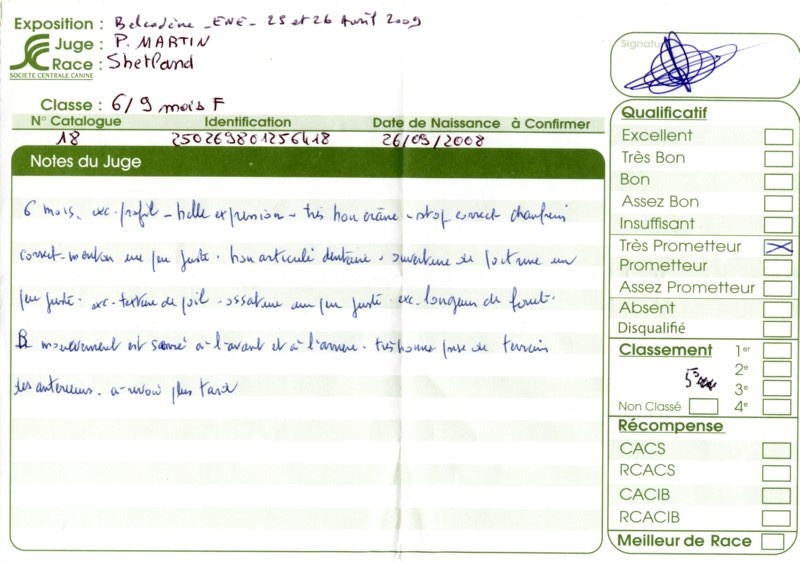 Exposition : Belcodène - ENE - 25 et 26 Avril 2009
Juge : P. MARTIN
Race : Shetland
SOCIETE CENTRALE CANINE
Classe : 6/9 mois F
N° Catalogue Identification Date de Naissance à Confirmer
18 250269801256418 26/09/2008
Notes du Juge
6 mois. exc. profil - belle expression - très bon crâne - stop correct chanfrein
correct - menton un peu juste. bon articulé dentaire. ouverture de poitrine un
peu juste. exc. texture de poil. ossature un peu juste. exc. longueur de fouet.
mouvement est serré à l'avant et à l'arrière. très bonne prise de terrain
des antérieurs. à revoir plus tard
Signature
Qualificatif
Excellent
Très Bon
Bon
Assez Bon
Insuffisant
Très Prometteur
Prometteur
Assez Prometteur
Absent
Disqualifié
Classement 1er
2e
5ème
3e
Non Classé 4e
Récompense
CACS
RCACS
CACIB
RCACIB
Meilleur de Race